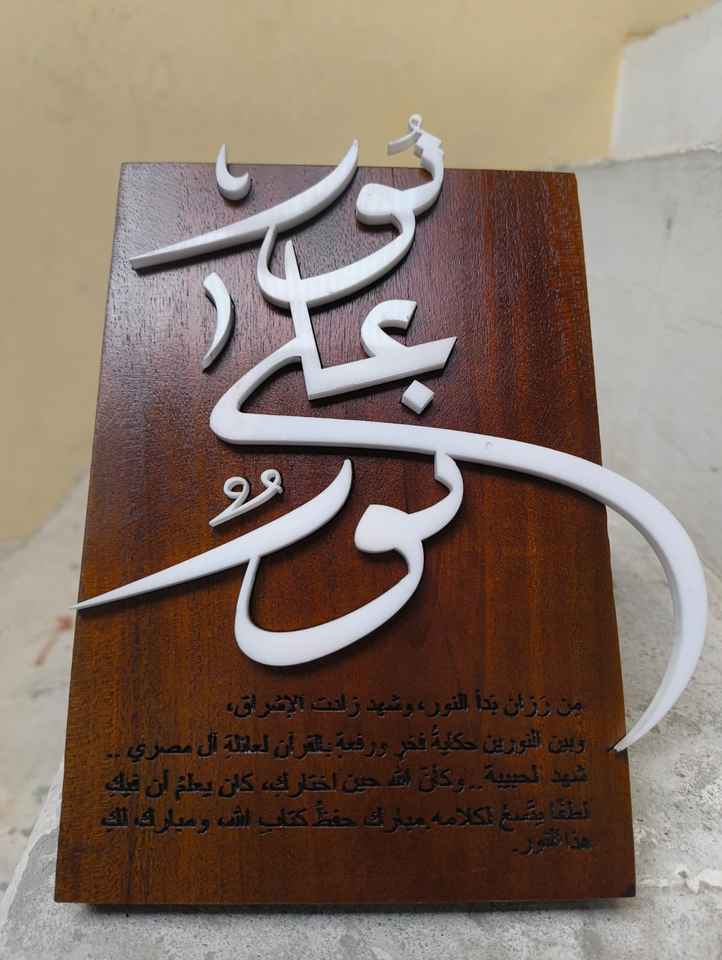 نُورٌ
على
نُورٌ
مِن رَزان بَدأ النور، وشهد زادت الإشراق،
وبين النورين حكايةُ فخرٍ ورفعةٍ بالقرآن لعائلةِ آل مصري ..
شهد الحبيبة .. وكأنّ الله حين اختاركِ، كان يعلمُ أن فيكِ
لطفًا يتّسعُ لكلامه. مبارك حفظُ كتابِ الله، ومباركٌ لكِ
هذا النور.